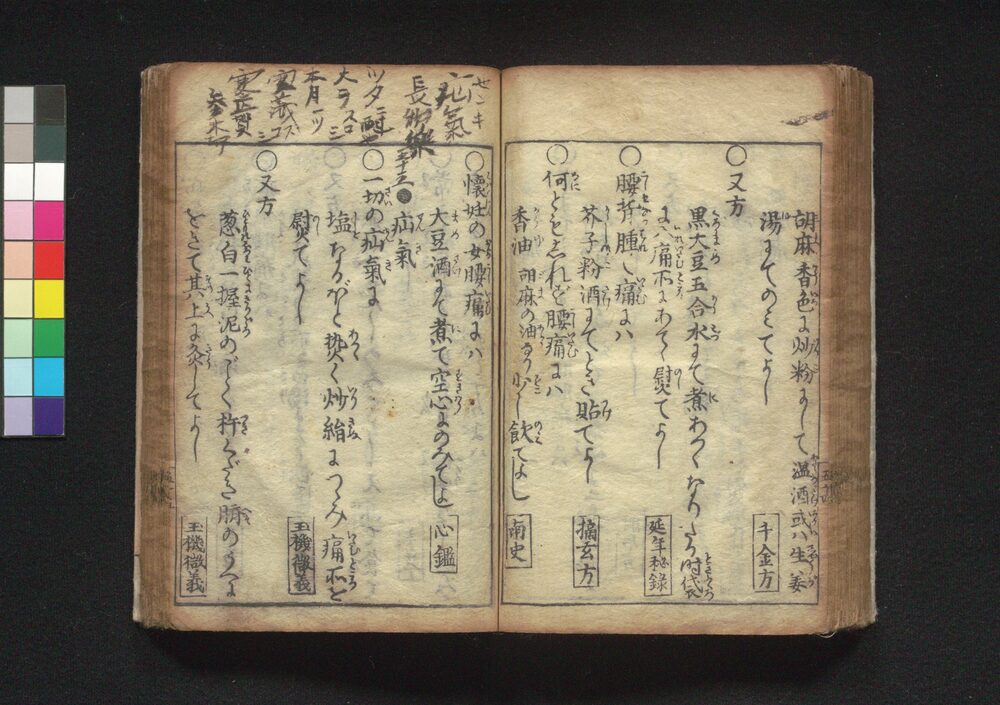 胡麻香色に炒粉にして温酒或ハ生姜
湯にてのミてよし
千金方
〇又方
黒大豆五合水にて煮あつくなりたる時袋
に入痛所にあてゝ熨てよし
延年秘録
〇腰背腫て痛にハ
芥子粉酒にてとき貼てよし
摘玄方
〇何ともしれず腰痛にハ
香油 胡麻の油なり 少し飲てよし
南史
〇懐妊の女腰痛にハ
大豆酒にて煮て空心にのみてよし
心鑑
疝氣
〇一切の疝氣に
塩なるほど熱く炒絹につゝみ痛所を
熨てよし
玉機微義
〇又方
葱白一握泥のごとく杵くだき臍のうへに
をきて其上に灸してよし
玉機微義
せンキ
疝氣
長
本月一ツ